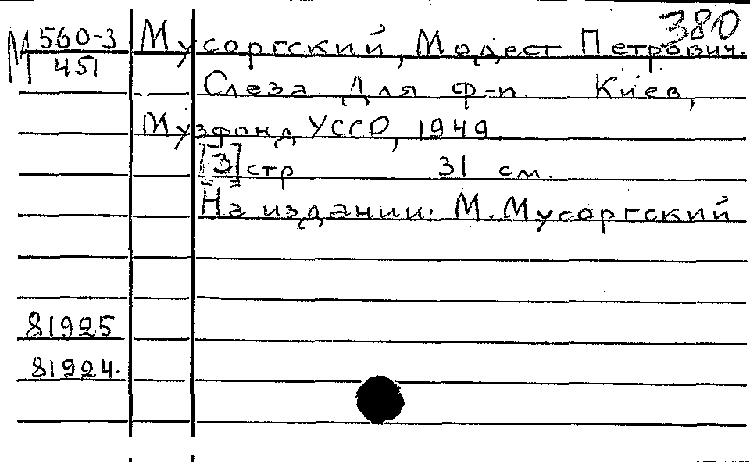 380
М 560-3 Мусоргский, Модест Петрович.
451
Слеза Для ф-п. Киев,
Музфонд УССР, 1949
[3] стр 31 см.
На издании: М. Мусоргский
81925
81924.